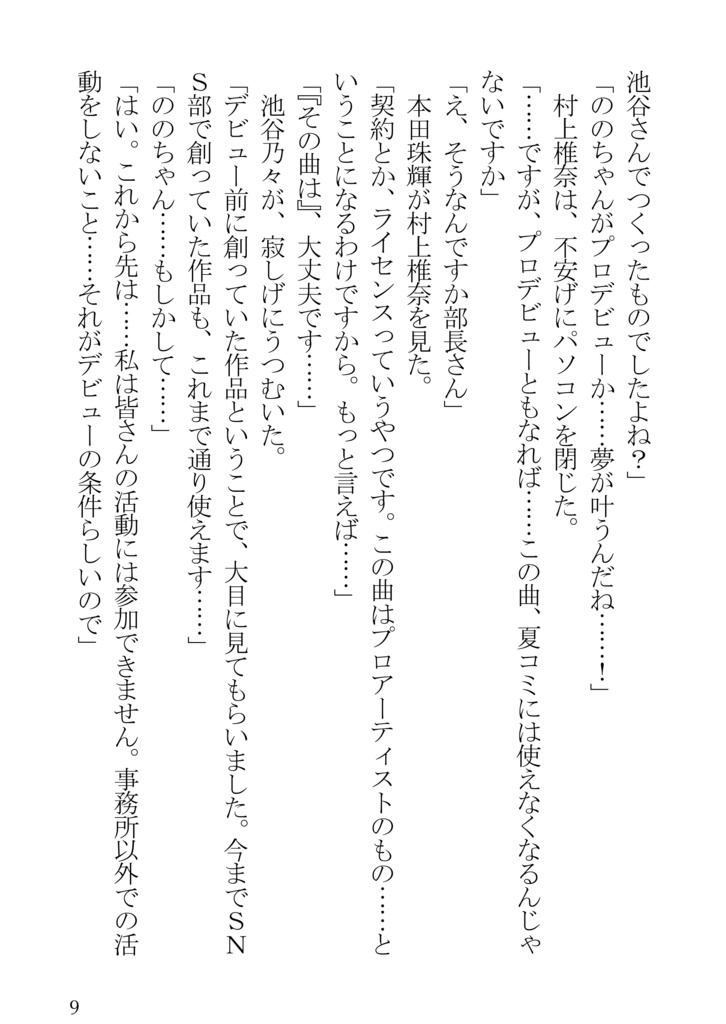 池谷さんでつくったものでしたよね？」
「ののちゃんがプロデビューか……夢が叶うんだね……！」
　村上椎奈は、不安げにパソコンを閉じた。
「……ですが、プロデビューともなれば……この曲、夏コミには使えなくなるんじゃ
ないですか」
「え、そうなんですか部長さん」
　本田珠輝が村上椎奈を見た。
「契約とか、ライセンスっていうやつです。この曲はプロアーティストのもの……と
いうことになるわけですから。もっと言えば……」
「『その曲は』、大丈夫です……」
　池谷乃々が、寂しげにうつむいた。
「デビュー前に創っていた作品ということで、大目に見てもらいました。今までＳＮ
Ｓ部で創っていた作品も、これまで通り使えます……」
「ののちゃん……もしかして……」
「はい。これから先は……私は皆さんの活動には参加できません。事務所以外での活
動をしないこと……それがデビューの条件らしいので」
9